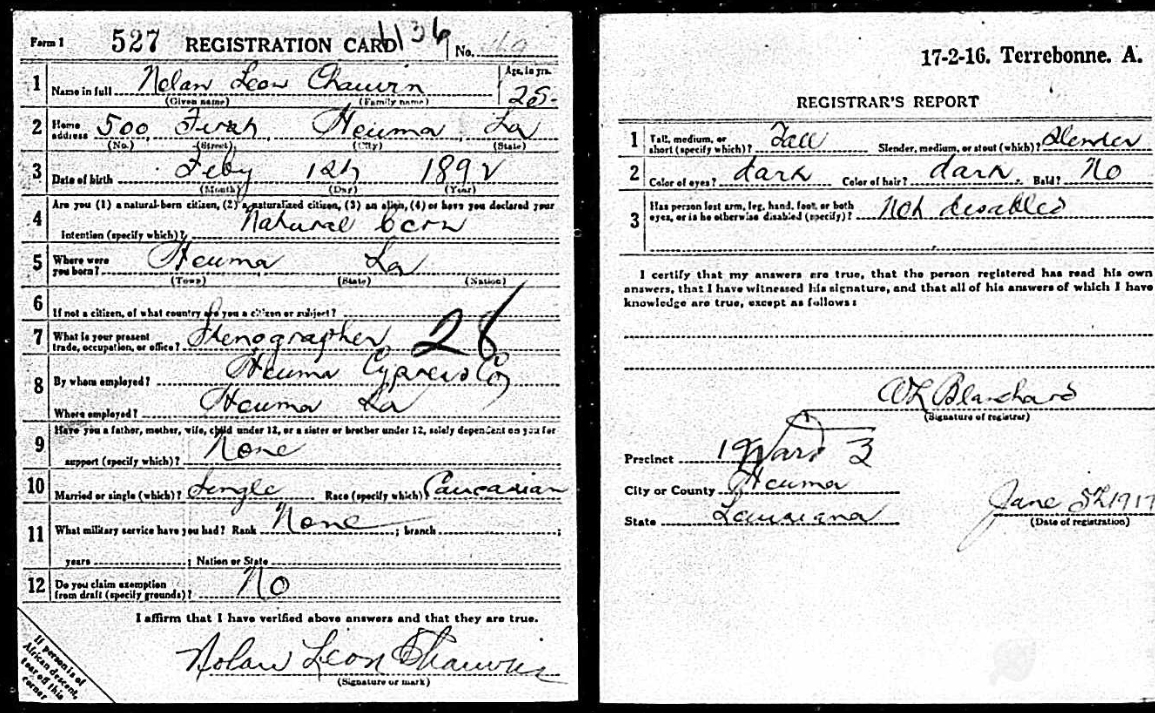 Form 1 527 REGISTRATION CARD 1136 No.
1 Name in full Nolan Leon Chauvin Age, in yrs. 25
(Given name) (Family name)
2 Home address 500 First Houma La
(No.) (Street) (City) (State)
3 Date of birth Feby 12th 1892
(Month) (Day) (Year)
4 Are you (1) a natural-born citizen, (2) a naturalized citizen, (3) an alien, (4) or have you declared your
intention (specify which)? Natural born
5 Where were you born? Houma La
(Town) (State) (Nation)
6 If not a citizen, of what country are you a citizen or subject?
7 What is your present trade, occupation, or office? Stenographer 26
8 By whom employed? Houma Cypress Co
Where employed? Houma La
9 Have you a father, mother, wife, child under 12, or a sister or brother under 12, solely dependent on you for
support (specify which)? None
10 Married or single (which)? Single Race (specify which)? Caucasian
11 What military service have you had? Rank None ; branch ;
years ; Nation or State
12 Do you claim exemption from draft (specify grounds)? No
I affirm that I have verified above answers and that they are true.
Nolan Leon Chauvin
(Signature or mark)
If person is of
African descent,
tear off this
corner
17-2-16. Terrebonne. A.
REGISTRAR'S REPORT
1 Tall, medium, or short (specify which)? Tall Slender, medium, or stout (which)? Slender
2 Color of eyes? dark Color of hair? dark Bald? No
3 Has person lost arm, leg, hand, foot, or both eyes, or is he otherwise disabled (specify)? Not disabled
I certify that my answers are true, that the person registered has read his own
answers, that I have witnessed his signature, and that all of his answers of which I have
knowledge are true, except as follows:
Blanchard
(Signature of registrar)
Precinct 1 Ward 3
City or County Houma
State Louisiana
June 5th 1917
(Date of registration)